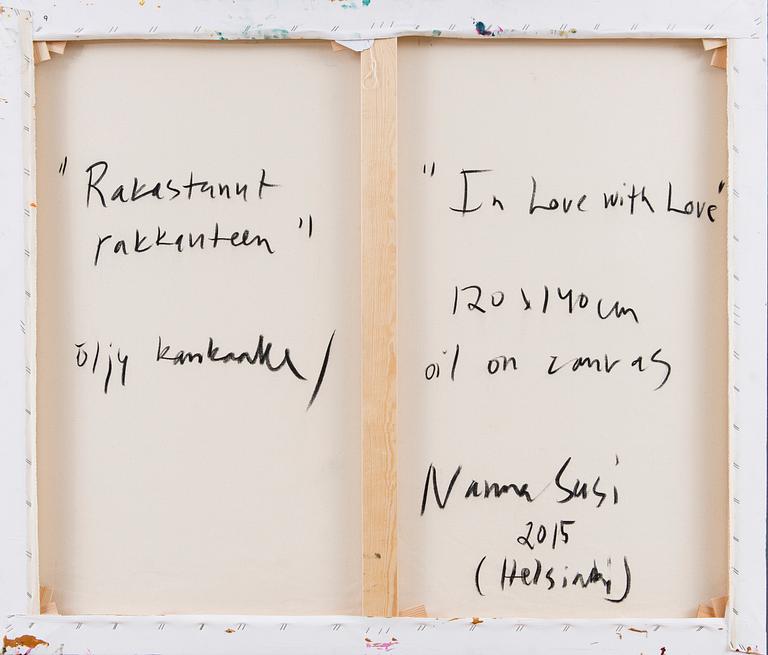 "Rakastunut
rakkauteen"
öljy kankaalle/
"In Love with Love"
120x140cm
oil on canvas
Nanna Susi
2015
(Helsinki)
9